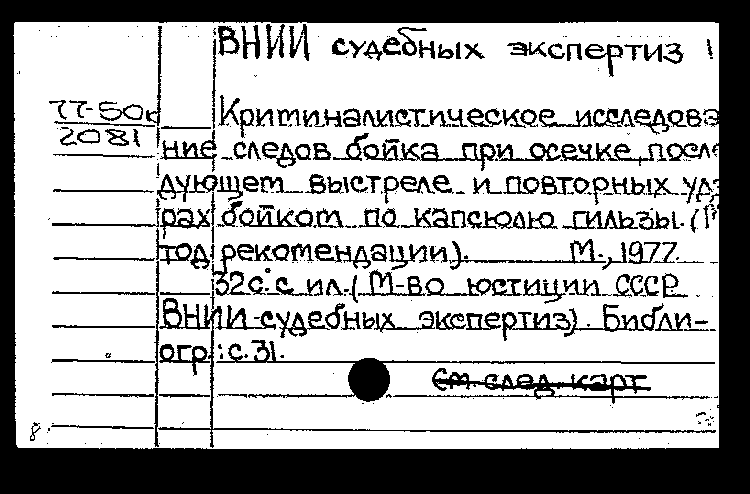 ВНИИ судебных экспертиз
77-50к
2081
Криминалистическое исследова
ние следов бойка при осечке, после
дующем выстреле и повторных уда
рах бойком по капсюлю гильзы. (М
тод рекомендации). М., 1977.
32с. с ил. (М-во юстиции СССР
ВНИИ судебных экспертиз). Библи-
огр.: с. 31.
См. след. карт.
8